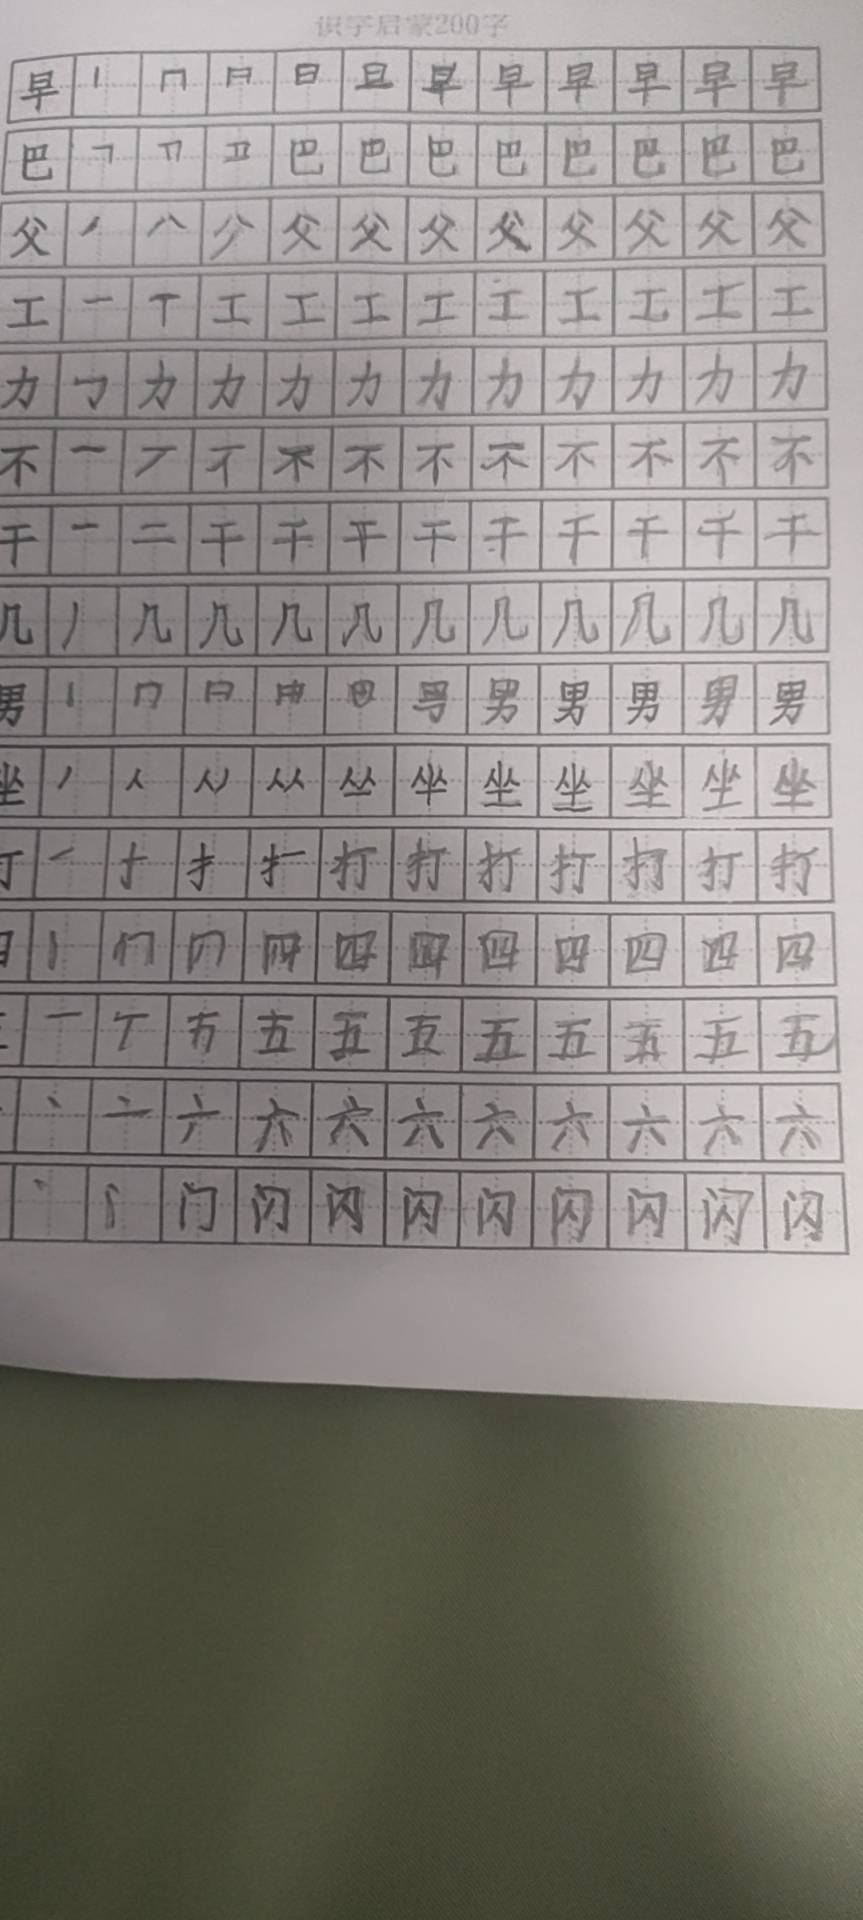 识字启蒙200字
早 丨 冂 日 日 旦 早 早 早 早 早 早
巴 巴 巴 巴 巴 巴 巴 巴 巴
父 丿 八 父 父 父 父 父 父 父 父
工 一 丅 工 工 工 工 工 工 工 工 工
力 力 力 力 力 力 力 力 力 力 力
不 一 丆 不 不 不 不 不 不 不 不
干 一 二 干 干 干 干 干 干 干 干 干
几 丿 几 几 几 几 几 几 几 几 几 几
男 丨 冂 男 男 男 男 男
坐 丿 人 从 坐 坐 坐 坐 坐
打 一 扌 打 打 打 打 打 打 打
丨 四 四 四 四 四 四 四
一 丅 五 五 五 五 五 五 五 五
丶 亠 六 六 六 六 六 六 六 六 六
丶 门 闪 闪 闪 闪 闪 闪 闪 闪